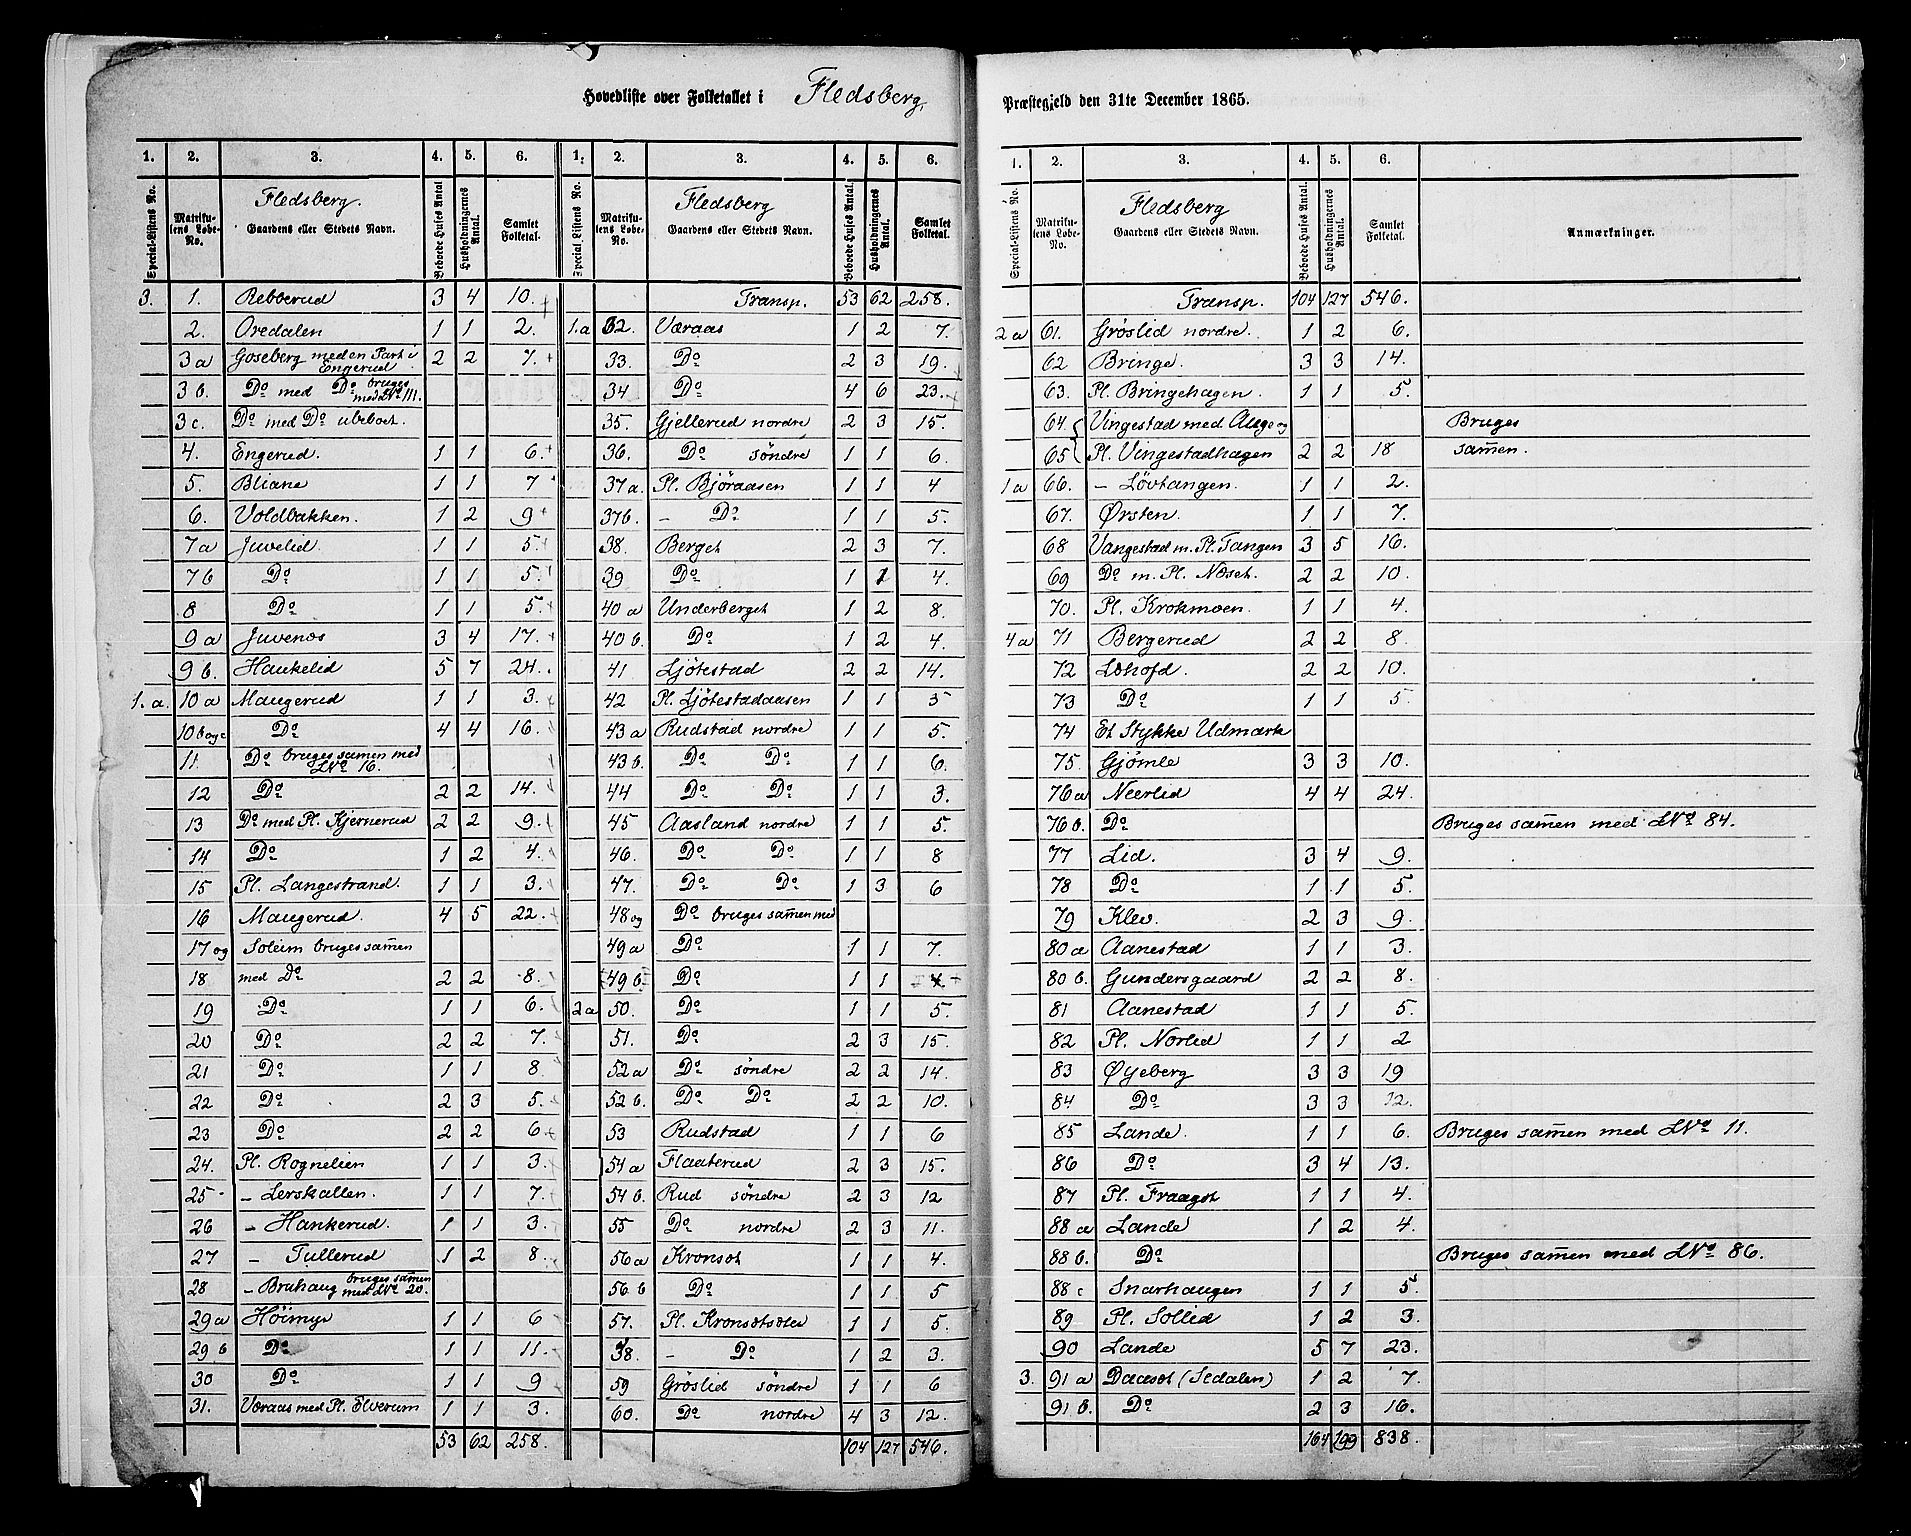 Hovedliste over Folketallet i Fledsberg Præstegjeld den 31te December 1865.
1. 2. 3. 4. 5. 6. 1. 2. 3. 4. 5. 6.
Special-Listens No. Matrikulens Løbe-No. Fledsberg. Gaardens eller Stedets Navn. Beboede Huses Antal Husholdningernes Antal. Samlet Folketal. Special Listens No. Matrikulens Løbe-No. Fledsberg Gaardens eller Stedets Navn. Beboede Huses Antal. Husholdningernes Antal. Samlet Folketal.
3. 1. Rebberud 3 4 10.
2. Oredalen 1 1 2.
3 a Goseberg med en Part i Engerud. 2 2 7.
3 b. Do med Do bruges med LNo 111.
3 c. Do med Do ubeboet.
4. Engerud. 1 1 6.
5. Bliane 1 1 7
6. Voldbakken. 1 2 9
7 a Juvelid. 1 1 5.
7 b Do 1 1 5.
8 Do 1 1 5.
9 a Juvenæs 3 4 17.
9 b. Haukelid 5 7 24.
1. a. 10 a Maugerud 1 1 3.
10 b og c Do 4 4 16.
11. Do bruges samen med LNo 16.
12 Do 2 2 14.
13 Do med Pl. Kjernerud 2 2 9.
14 Do 1 2 4.
15 Pl. Langestrand. 1 1 3.
16 Maugerud. 4 5 22.
17 og Soleim bruges samen
18 med Do 2 2 8.
19 Do 1 1 6.
20 Do 2 2 7.
21 Do 1 1 8.
22 Do 2 3 5.
23 Do 2 2 6
24. Pl. Rognelien 1 1 3.
25 - Lerskallen. 1 1 7.
26 - Hankerud. 1 1 3.
27 - Tullerud 1 2 8.
28 - Bruhaug bruges samen med LNo 20.
29 a Höimyr 1 1 6
29 b Do 1 1 11.
30 Do 1 1 9
31. Væraas med Pl. Elverum 1 1 3.
53 62 258.
Transp. 53 62 258.
1. a 32. Væraas 1 2 7.
33. Do 2 3 19.
34 Do 4 6 23.
35. Gjellerud nordre 2 3 15.
36. Do söndre 1 1 6.
37 a. Pl. Björaasen 1 1 4
37 b. - Do 1 1 5.
38. Berget 2 3 7.
39 Do 1 1 4.
40 a Underberget 1 2 8.
40 b. Do 1 2 4.
41 Ljötestad 2 2 14.
42 Pl. Ljötestadaasen 1 1 3
43 a Rudstad nordre 1 1 5.
43 b. Do Do 1 1 6.
44 Do Do 1 1 3.
45 Aasland nordre 1 1 5.
46. Do Do 1 1 8
47. Do Do 1 3 6
48 og Do bruges samen med
49 a Do 1 1 7.
49 b. Do 1 1 4
2 a 50. Do 1 1 5.
51. Do 2 3 15.
52 a Do söndre 2 2 14.
52 b. Do Do 2 2 10.
53 Rudstad 1 1 6
54 a Flaaterud 2 3 15.
54 b. Rud söndre 2 3 12
55 Do nordre 2 3 11.
56 a Kronsæt 1 1 4.
56 b Do 1 1 5
57. Pl. Kronsætsæter 1 1 5.
58. - Do 1 2 3.
59 Gröslid söndre 1 1 6
60. Do nordre 4 3 12.
104 127 546.
1. 2. 3. 4. 5. 6.
Special-Listens No. Matrikulens Løbe-No. Fledsberg Gaardens eller Stedets Navn. Beboede Huses Antal. Husholdningernes Antal. Samlet Folketal. Anmærkninger.
Transp. 104 127 546.
2 a 61. Gröslid nordre. 1 2 6.
62 Bringe. 3 3 14.
63. Pl. Bringehagen. 1 1 5.
64. Vingestad med Auge og Bruges
65 Pl. Vingestadhagen 2 2 18 samen.
1 a 66. - Lövtangen. 1 1 2.
67. Ørsten. 1 1 7.
68 Vangestad m. Pl. Tangen 3 5 16.
69 Do m. Pl. Næset. 2 2 10.
70. Pl. Krokmoen. 1 1 4.
4 a 71 Bergerud 2 2 8
72 Lohofd. 2 2 10.
73 Do 1 1 5
74 Et Stykke Udmark
75. Gjömle 3 3 10.
76 a Neerlid 4 4 24.
76 b. Do Bruges samen med LNo 84.
77 Lid. 3 4 9.
78 Do 1 1 5.
79 Klev. 2 3 9.
80 a Aanestad 1 1 3.
80 b. Gundersgaard 2 2 8.
81 Aanestad 1 1 5.
82 Pl. Norlid 1 1 2
83 Øyeberg 3 3 19
84 Do 3 3 12.
85 Lande. 1 1 6. Bruges samen med LNo 11.
86 Do 3 4 13.
87 Pl. Fraaget 1 1 4.
88 a Lande 1 2 4.
88 b. Do Bruges samen med LNo 86.
88 c Snarhaugen 1 1 5.
89 Pl. Sollid 1 2 3.
90 Lande 5 7 23.
3. 91 a Daaset (Sedalen) 1 2 7.
91 b. Do 2 3 16.
164 199 838.